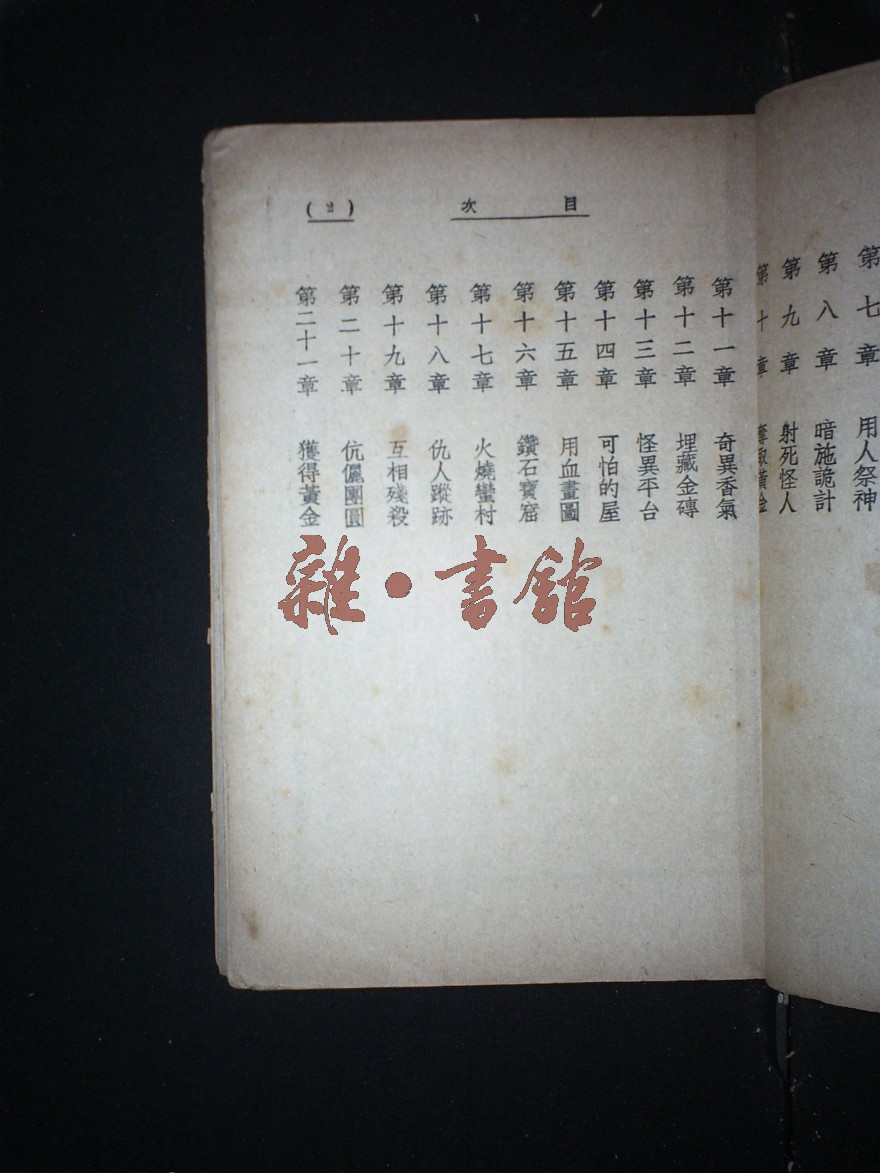 第七章 用人祭神
第八章 暗施詭計
第九章 射死怪人
第十章 奪取黃金
目次
(2)
第十一章 奇異香氣
第十二章 埋藏金磚
第十三章 怪異平台
第十四章 可怕的屋
第十五章 用血畫圖
第十六章 鑽石寶窟
第十七章 火燒蠻村
第十八章 仇人蹤跡
第十九章 互相殘殺
第二十章 伉儷團圓
第二十一章 獲得黃金
雜·書館